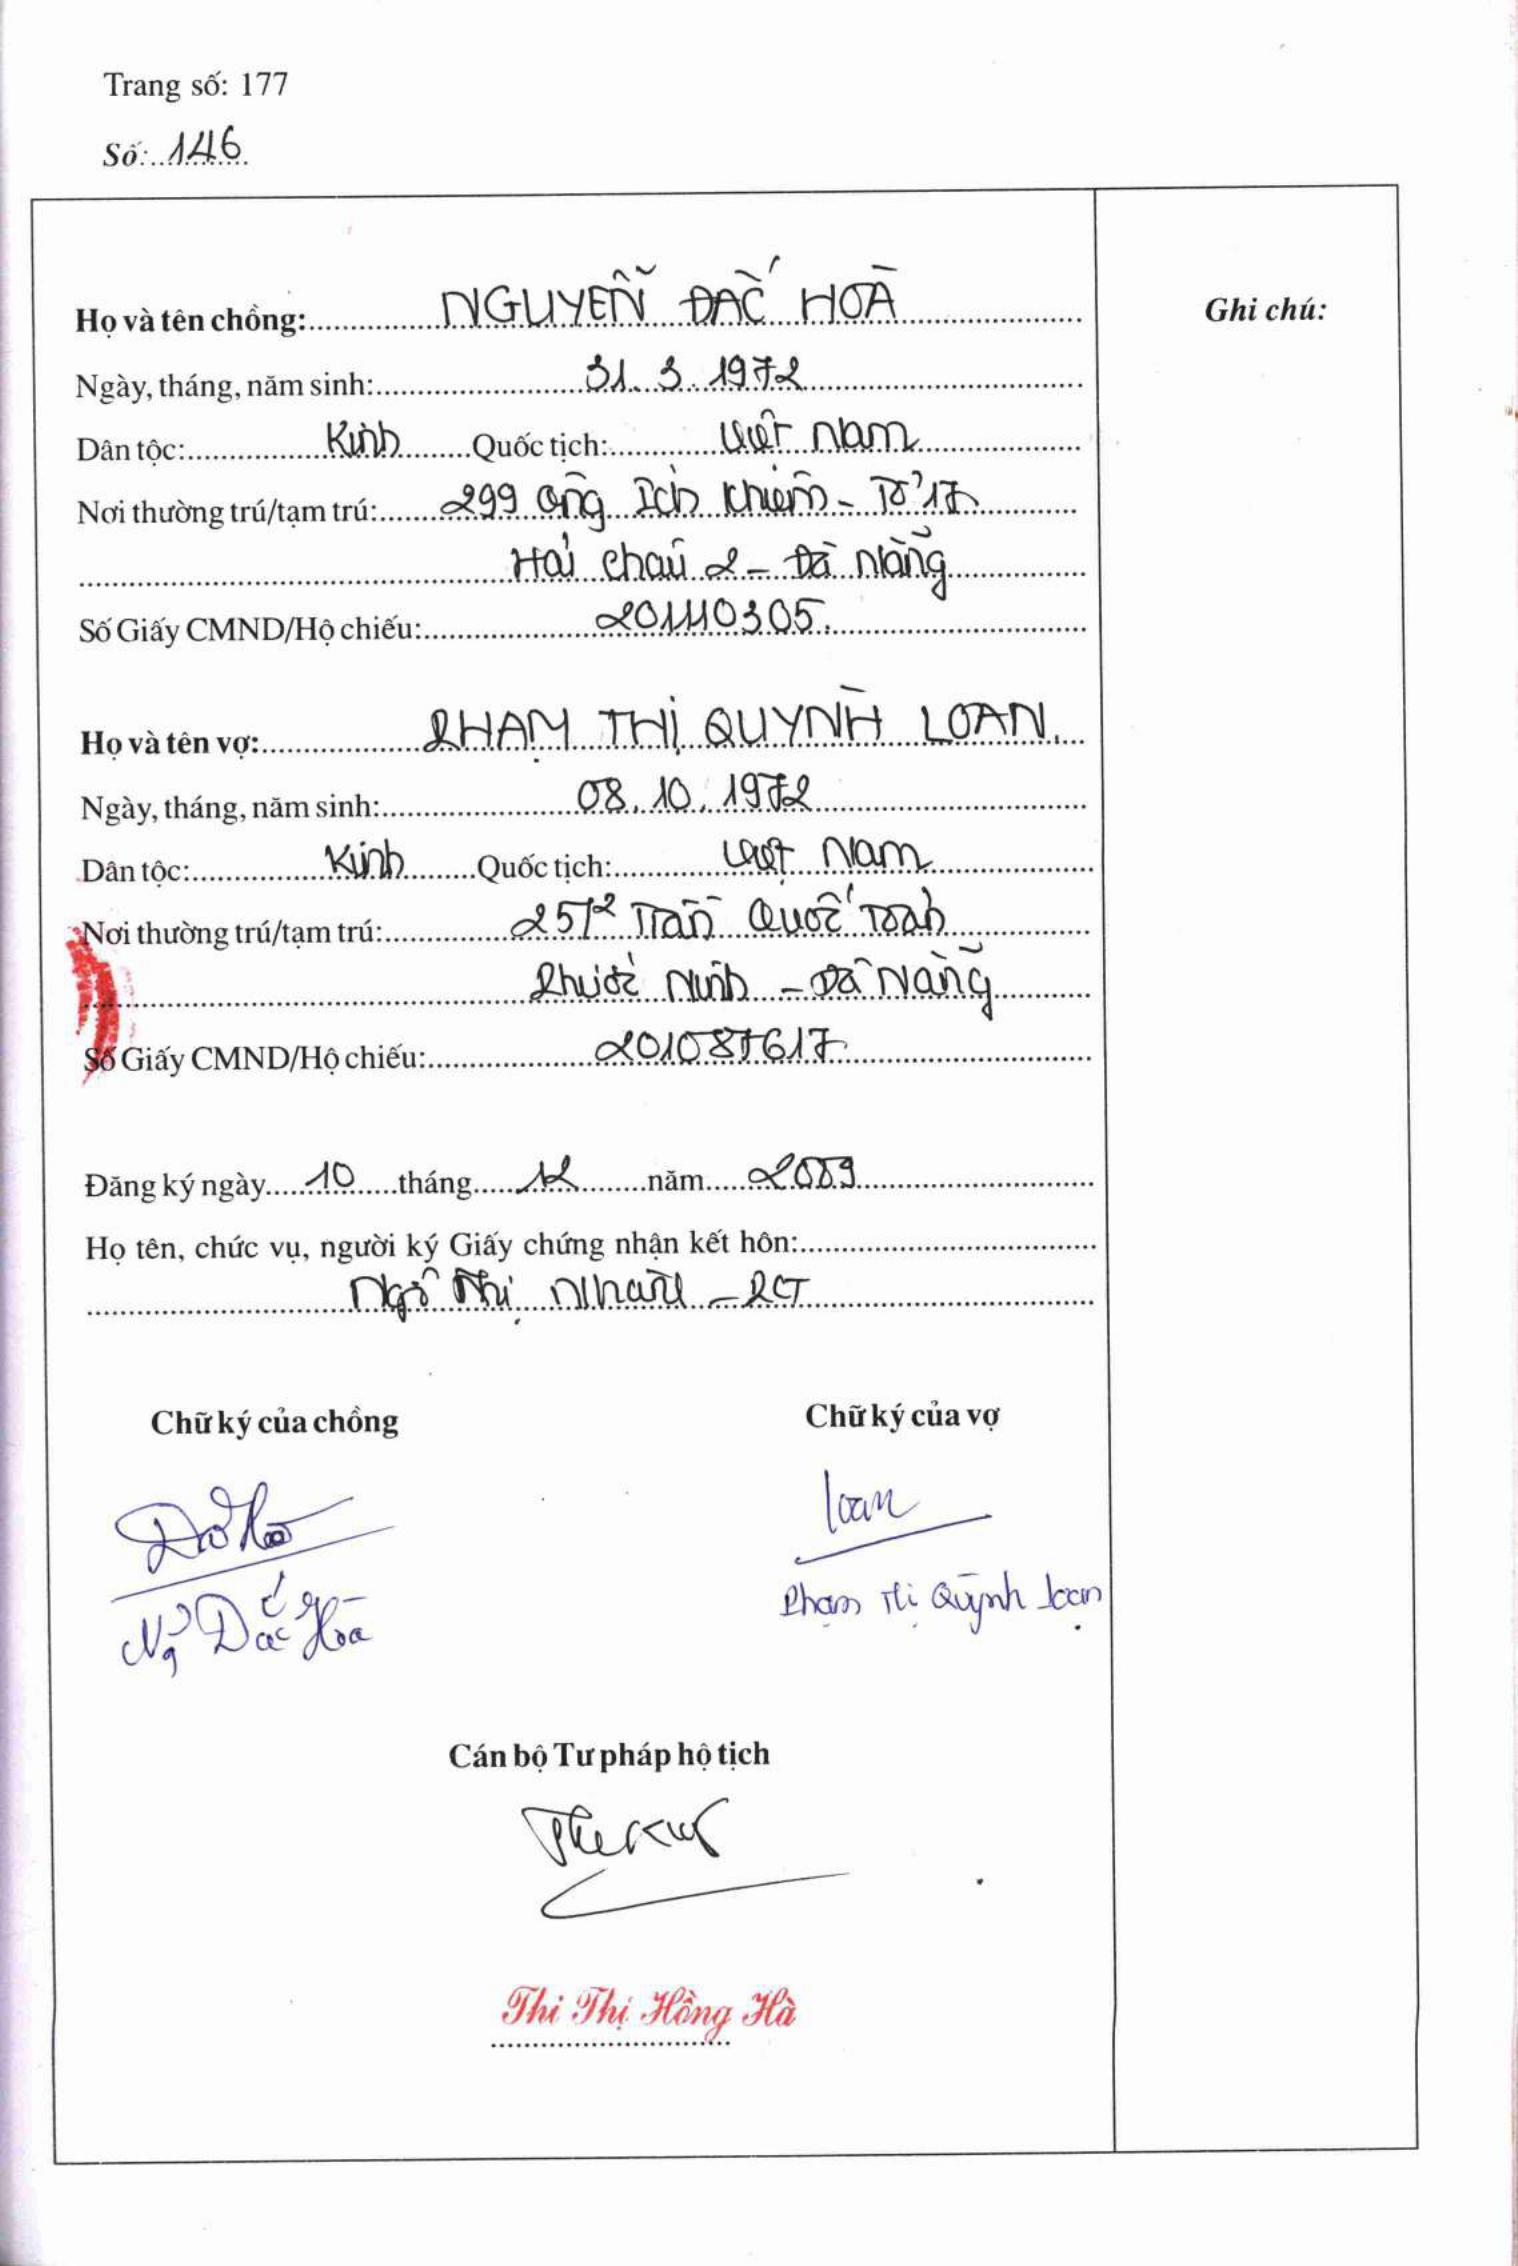 Trang số: 177
Số: 146
Họ và tên chồng: NGUYỄN ĐẮC HOÀ
Ghi chú:
Ngày, tháng, năm sinh: 31.3.1972
Dân tộc: Kinh Quốc tịch: Việt Nam
Nơi thường trú/tạm trú: 299 Ông Ích Khiêm - Tổ 17
Hải Châu 2 - Đà Nẵng
Số Giấy CMND/Hộ chiếu:
Họ và tên vợ: PHẠM THỊ QUỲNH LOAN.
Ngày, tháng, năm sinh: 08.10.1972
Dân tộc: Kinh Quốc tịch: Việt Nam
Nơi thường trú/tạm trú: Trần Quốc Toản
Phước Ninh - Đà Nẵng
Số Giấy CMND/Hộ chiếu: 201087617
Đăng ký ngày 10 tháng 12 năm 2009
Họ tên, chức vụ, người ký Giấy chứng nhận kết hôn:
Ngô Thị - PCT
Chữ ký của chồng Chữ ký của vợ
Loan
Ng Đắc Hoà Phạm Thị Quỳnh Loan
Cán bộ Tư pháp hộ tịch
Thi Thị Hồng Hà